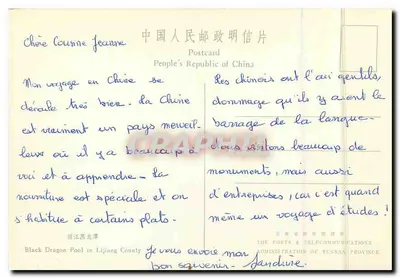 中国人民邮政明信片
Postcard
People's Republic of China
Chère Cousine Jeanne
Mon voyage en Chine se
déroule très bien. La Chine
est vraiment un pays merveil-
leux où il y a beaucoup à
voir et à apprendre. La
nourriture est spéciale et on
s'habitue à certains plats.
Les chinois ont l'air gentils,
dommage qu'il y ait le
barrage de la langue.
Nous visitons beaucoup de
monuments, mais aussi
d'entreprises, car c'est quand
même un voyage d'études!
Je vous envoie mon
bon souvenir. Sandrine.
丽江黑龙潭
Black Dragon Pool in Lijiang County
THE POSTS & TELECOMMUNICATIONS
ADMINISTRATION OF YUNNAN PROVINCE